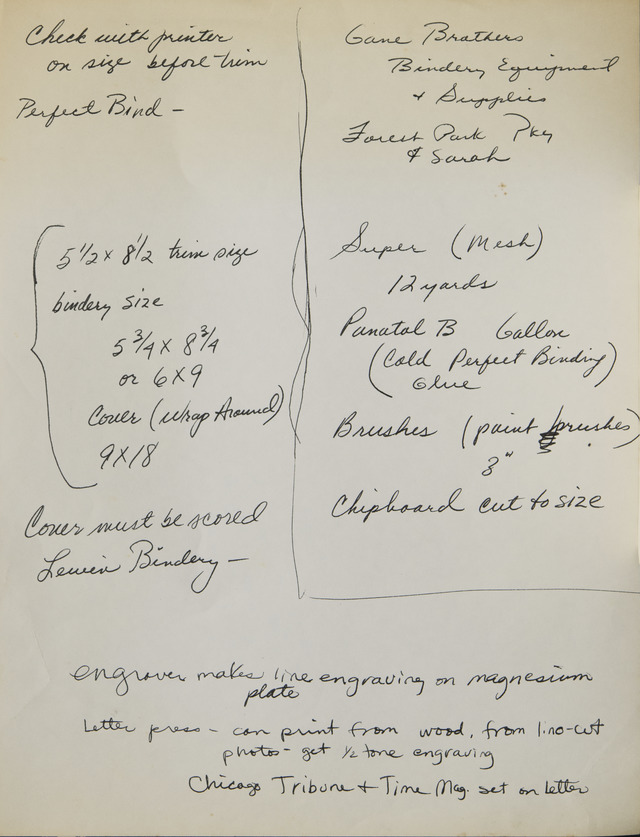 Check with printer
on size before trim
Perfect Bind -
5 1/2 x 8 1/2 trim size
bindery size
5 3/4 x 8 3/4
or 6 x 9
Cover (Wrap Around)
9 x 18
Cover must be scored
Bindery -
Gane Brothers
Bindery Equipment
+ Supplies
Forest Park Pky
& Sarah
Super (Mesh)
12 yards
Panatol B Gallon
(Cold Perfect Binding)
Glue
Brushes (paint brushes)
3"
Chipboard cut to size
engraver makes line engraving on magnesium
plate
Letter press - can print from wood, from lino-cut
photos - get 1/2 tone engraving
Chicago Tribune + Time Mag. set on Letter